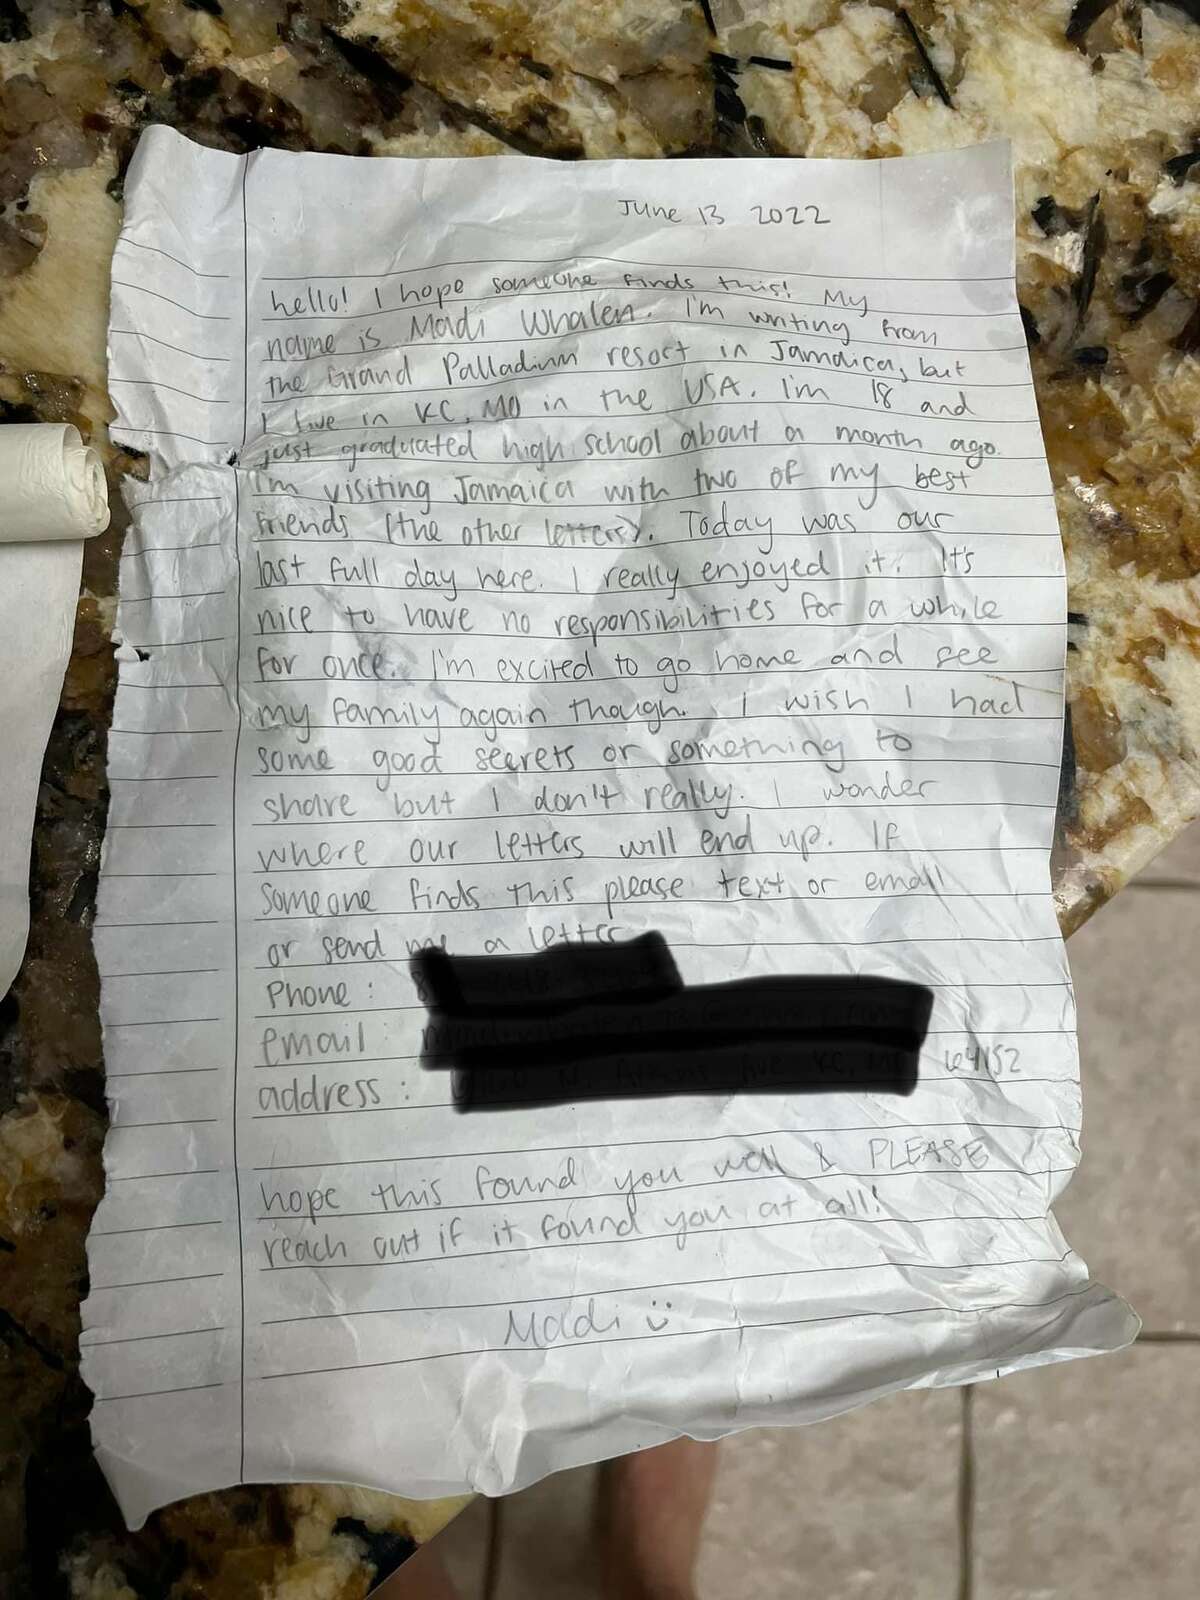 June 13 2022
hello! I hope someone finds this! My
name is Madi Whalen. I'm writing from
the Grand Palladium resort in Jamaica, but
I live in KC, MO in the USA. I'm 18 and
just graduated high school about a month ago.
I'm visiting Jamaica with two of my best
friends (the other letters). Today was our
last full day here. I really enjoyed it. It's
nice to have no responsibilities for a while
for once. I'm excited to go home and see
my family again though. I wish I had
some good secrets or something to
share but I don't really. I wonder
where our letters will end up. If
someone finds this please text or email
or send me a letter
Phone:
email:
address: 64152
hope this found you well & PLEASE
reach out if it found you at all!
Madi